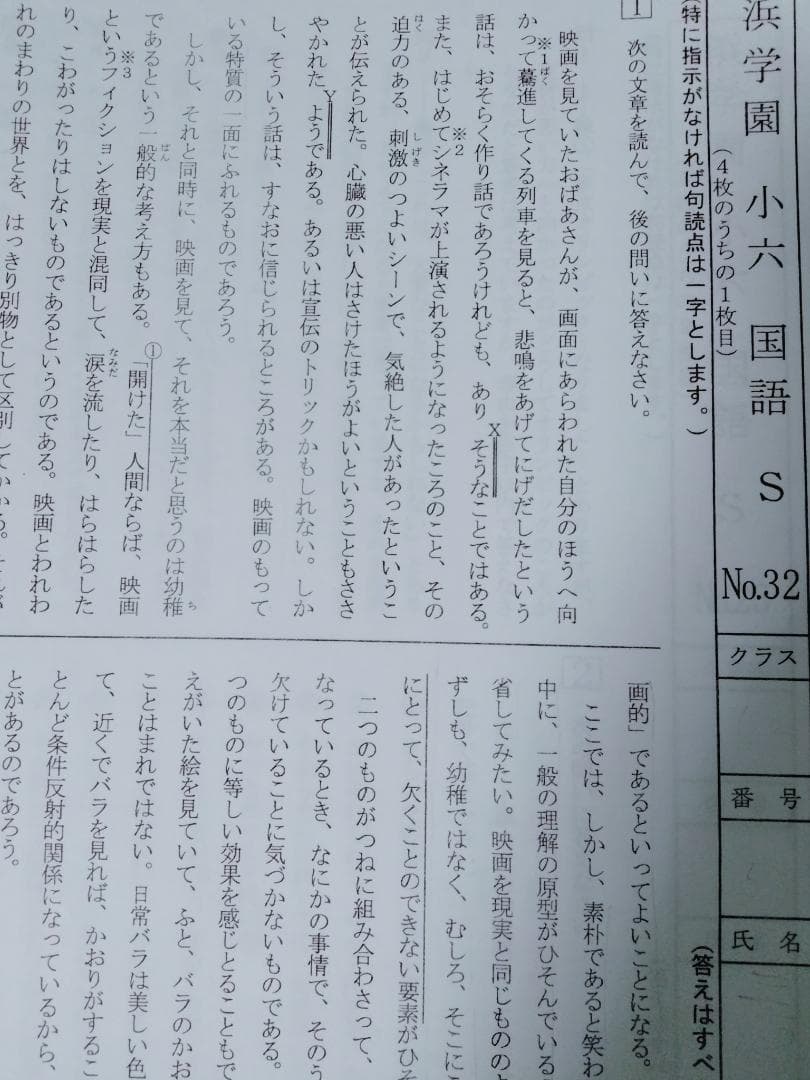 浜学園 小六 国語 S No.32
(4枚のうちの1枚目)
クラス
番号
氏名
(特に指示がなければ句読点は一字とします。)
(答えはすべ
1 次の文章を読んで、後の問いに答えなさい。
映画を見ていたおばあさんが、画面にあらわれた自分のほうへ向
かって※1驀進してくる列車を見ると、悲鳴をあげてにげだしたという
話は、おそらく作り話であろうけれども、ありXそうなことではある。
また、はじめて※2シネラマが上演されるようになったころのこと、その
迫力のある、刺激のつよいシーンで、気絶した人があったというこ
とが伝えられた。心臓の悪い人はさけたほうがよいということもささ
やかれたYようである。あるいは宣伝のトリックかもしれない。しか
し、そういう話は、すなおに信じられるところがある。映画のもって
いる特質の一面にふれるものであろう。
しかし、それと同時に、映画を見て、それを本当だと思うのは幼稚
であるという一般的な考え方もある。①「開けた」人間ならば、映画
という※3フィクションを現実と混同して、涙を流したり、はらはらした
り、こわがったりはしないものであるというのである。映画とわれわ
れのまわりの世界とを、はっきり別物として区別して
画的」であるといってよいことになる。
ここでは、しかし、素朴であると笑わ
中に、一般の理解の原型がひそんでいる
省してみたい。映画を現実と同じものと
ずしも、幼稚ではなく、むしろ、そこにこ
にとって、欠くことのできない要素がひそ
二つのものがつねに組み合わさって、
なっているとき、なにかの事情で、そのう
欠けていることに気づかないものである。
つのものに等しい効果を感じとることもで
えがいた絵を見ていて、ふと、バラのかお
ことはまれではない。日常バラは美しい色
て、近くでバラを見れば、かおりがするこ
とんど条件反射的関係になっているから、
とがあるのであろう。